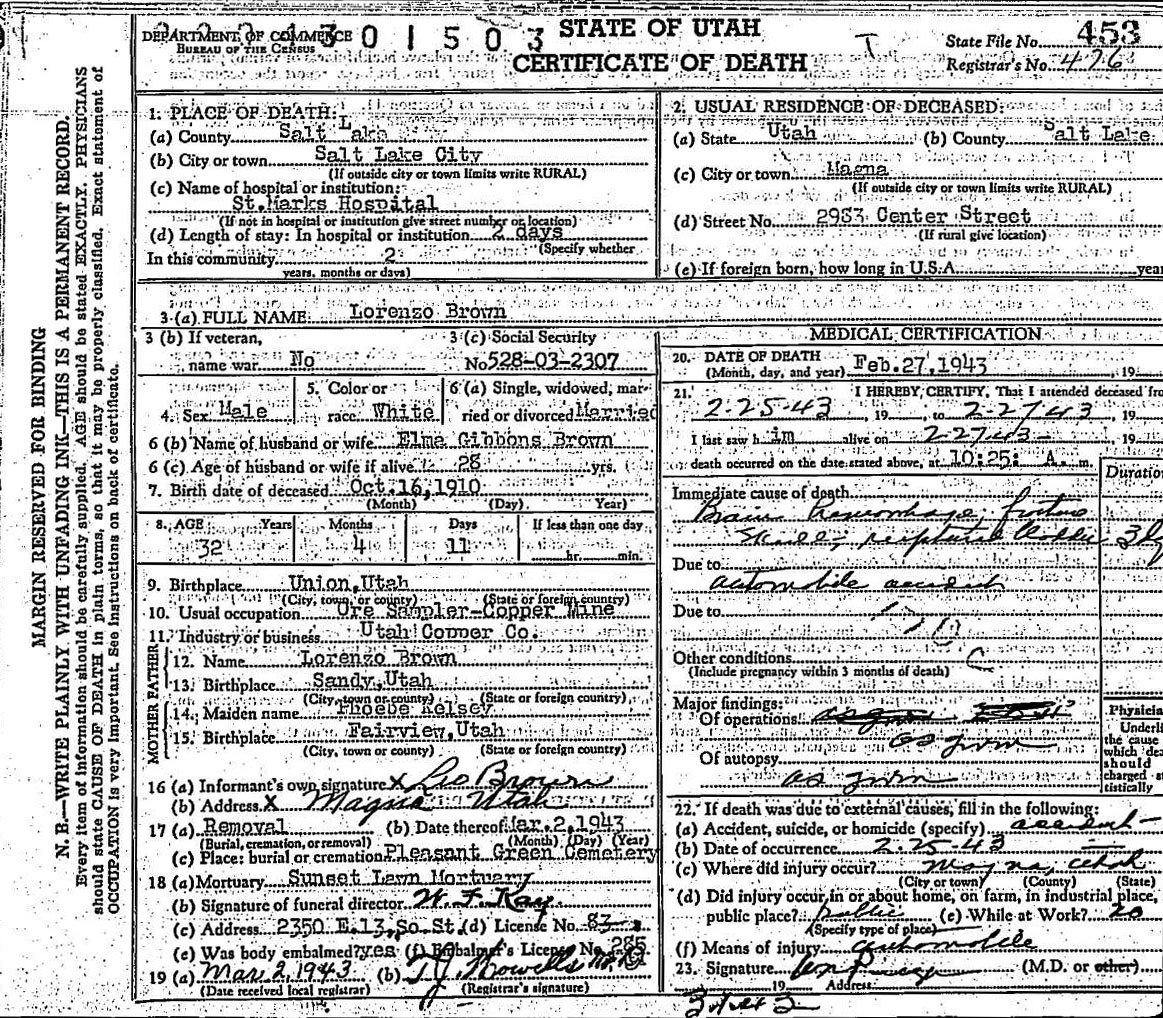 DEPARTMENT OF COMMERCE
BUREAU OF THE CENSUS
STATE OF UTAH
CERTIFICATE OF DEATH
State File No. 453
Registrar's No. 476
MARGIN RESERVED FOR BINDING
N. B.—WRITE PLAINLY, WITH UNFADING INK—THIS IS A PERMANENT RECORD.
Every item of information should be carefully supplied. AGE should be stated EXACTLY. PHYSICIANS
should state CAUSE OF DEATH in plain terms, so that it may be properly classified. Exact statement of
OCCUPATION is very important. See instructions on back of certificate.
1. PLACE OF DEATH:
(a) County Salt Lake
(b) City or town Salt Lake City
(If outside city or town limits write RURAL)
(c) Name of hospital or institution:
St.Marks Hospital
(If not in hospital or institution give street number or location)
(d) Length of stay: In hospital or institution 2 days
(Specify whether
In this community 2
years, months or days)
2. USUAL RESIDENCE OF DECEASED:
(a) State Utah (b) County Salt Lake
(c) City or town Magna
(If outside city or town limits write RURAL)
(d) Street No. 2983 Center Street
(If rural give location)
(e) If foreign born, how long in U.S.A. year
3 (a) FULL NAME Lorenzo Brown
3 (b) If veteran, 3 (c) Social Security
name war No No 528-03-2307
4. Sex Male 5. Color or race White 6 (a) Single, widowed, married or divorced Married
6 (b) Name of husband or wife Elma Gibbons Brown
6 (c) Age of husband or wife if alive 28 yrs.
7. Birth date of deceased Oct.16,1910
(Month) (Day) Year)
8. AGE Years Months Days If less than one day
32 4 11 hr. min.
9. Birthplace Union,Utah
(City, town, or county) (State or foreign country)
10. Usual occupation Ore Sampler-Copper Mine
11. Industry or business Utah Copper Co.
FATHER
12. Name Lorenzo Brown
13. Birthplace Sandy,Utah
(City, town or county) (State or foreign country)
MOTHER
14. Maiden name Phoebe Kelsey
15. Birthplace Fairview,Utah
(City, town or county) (State or foreign country)
16 (a) Informant's own signature X Leo Brown
(b) Address X Magna Utah
17 (a) Removal (b) Date thereof Mar.2,1943
(Burial, cremation, or removal) (Month) (Day) (Year)
(c) Place: burial or cremation Pleasant Green Cemetery
18 (a) Mortuary Sunset Lawn Mortuary
(b) Signature of funeral director W. F. Kay
(c) Address 2350 E.13,So.St. (d) License No. 83
(e) Was body embalmed? yes (f) Embalmer's License No. 285
19 (a) Mar 2, 1943 (b) T.J. Howells
(Date received local registrar) (Registrar's signature)
MEDICAL CERTIFICATION
20. DATE OF DEATH
(Month, day, and year) Feb.27,1943 19
21. I HEREBY CERTIFY, That I attended deceased fro
2-25-43, 19 , to 2-27-43, 19
I last saw h im alive on 2-27-43, 19
death occurred on the date stated above, at 10:25: A. m.
Duration
Immediate cause of death
Brain hemorhage
Skull,
Due to
automobile accident
Due to
Other conditions
(Include pregnancy within 3 months of death)
Major findings:
Of operations
as given
Of autopsy
as given
Physicia
Underli
the cause
which dea
should
charged st
tistically
22. If death was due to external causes, fill in the following:
(a) Accident, suicide, or homicide (specify) accident
(b) Date of occurrence 2-25-43
(c) Where did injury occur? Magna, Utah
(City or town) (County) (State)
(d) Did injury occur in or about home, on farm, in industrial place,
public place? public (e) While at Work?
(Specify type of place)
(f) Means of injury automobile
23. Signature (M.D. or other)
19 Address